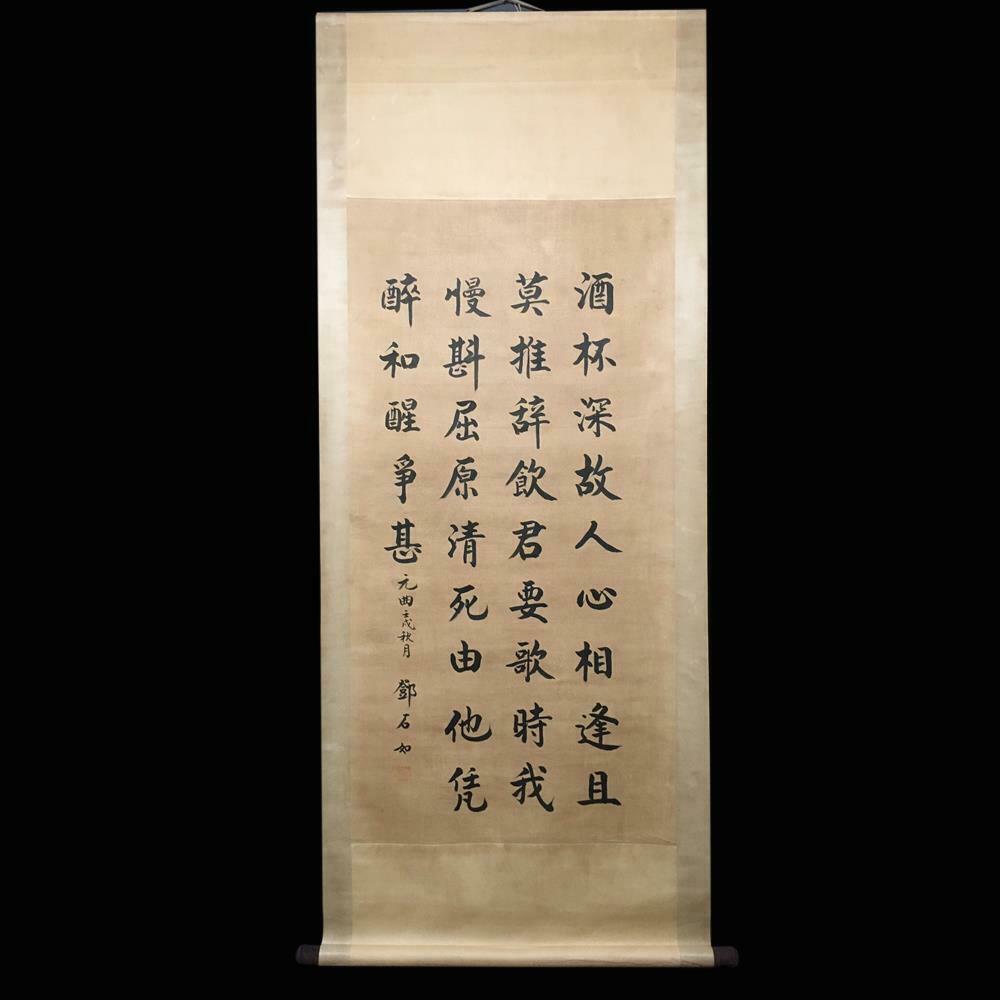 酒杯深故人心相逢且
莫推辞飲君要歌時我
慢斟屈原清死由他凭
醉和醒爭甚
元曲壬戌秋月
鄧石如